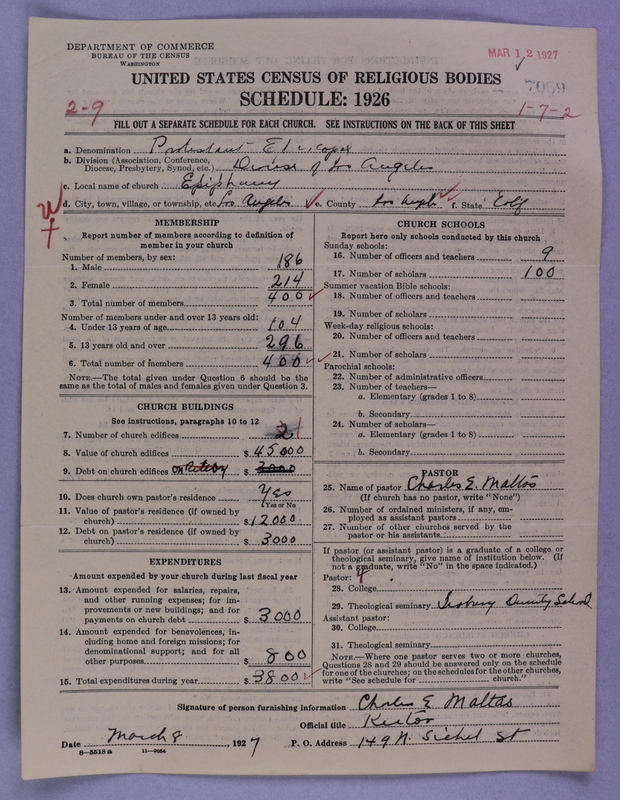 DEPARTMENT OF COMMERCE
BUREAU OF THE CENSUS
WASHINGTON
MAR 12 1927
UNITED STATES CENSUS OF RELIGIOUS BODIES
SCHEDULE: 1926
2-9
1-7-2
FILL OUT A SEPARATE SCHEDULE FOR EACH CHURCH. SEE INSTRUCTIONS ON THE BACK OF THIS SHEET
a. Denomination Protestant Episcopal
b. Division (Association, Conference, Diocese, Presbytery, Synod, etc.) Diocese of Los Angeles
c. Local name of church Epiphany
d. City, town, village, or township, etc. Los Angeles e. County Los Angeles f. State Calif
MEMBERSHIP
Report number of members according to definition of member in your church
Number of members, by sex:
1. Male 186
2. Female 214
3. Total number of members 400
Number of members under and over 13 years old:
4. Under 13 years of age 104
5. 13 years old and over 296
6. Total number of members 400
NOTE.—The total given under Question 6 should be the same as the total of males and females given under Question 3.
CHURCH BUILDINGS
See instructions, paragraphs 10 to 12
7. Number of church edifices 1
8. Value of church edifices $ 45000
9. Debt on church edifices $ 3000
10. Does church own pastor's residence Yes
(Yes or No)
11. Value of pastor's residence (if owned by church) $ 12000
12. Debt on pastor's residence (if owned by church) $ 3000
EXPENDITURES
Amount expended by your church during last fiscal year
13. Amount expended for salaries, repairs, and other running expenses; for improvements or new buildings; and for payments on church debt $ 3000
14. Amount expended for benevolences, including home and foreign missions; for denominational support; and for all other purposes $ 800
15. Total expenditures during year $ 3800
CHURCH SCHOOLS
Report here only schools conducted by this church
Sunday schools:
16. Number of officers and teachers 9
17. Number of scholars 100
Summer vacation Bible schools:
18. Number of officers and teachers
19. Number of scholars
Week-day religious schools:
20. Number of officers and teachers
21. Number of scholars
Parochial schools:
22. Number of administrative officers
23. Number of teachers—
a. Elementary (grades 1 to 8)
b. Secondary
24. Number of scholars—
a. Elementary (grades 1 to 8)
b. Secondary
PASTOR
25. Name of pastor Charles E. Maltas
(If church has no pastor, write "None")
26. Number of ordained ministers, if any, employed as assistant pastors
27. Number of other churches served by the pastor or his assistants
If pastor (or assistant pastor) is a graduate of a college or theological seminary, give name of institution below. (If not a graduate, write "No" in the space indicated.)
Pastor:
28. College
29. Theological seminary Seabury Divinity School
Assistant pastor:
30. College
31. Theological seminary
NOTE.—Where one pastor serves two or more churches, Questions 28 and 29 should be answered only on the schedule for one of the churches; on the schedules for the other churches, write "See schedule for church."
Signature of person furnishing information Charles E Maltas
Official title Rector
Date March 8, 1927 P. O. Address 149 N. Sichel St
8—5518 a 11—9564